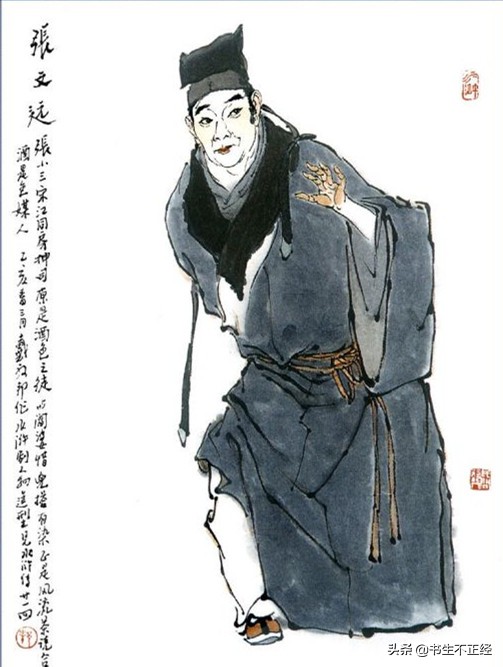 張文遠
張小三宋江同房押司原是酒色之徒与閻婆惜兜搭有染正是風流茶說合
酒是色媒人 乙亥春三月戴敦邦作水滸劇人物造型見水滸傳廿一回
头条 @书生不正经